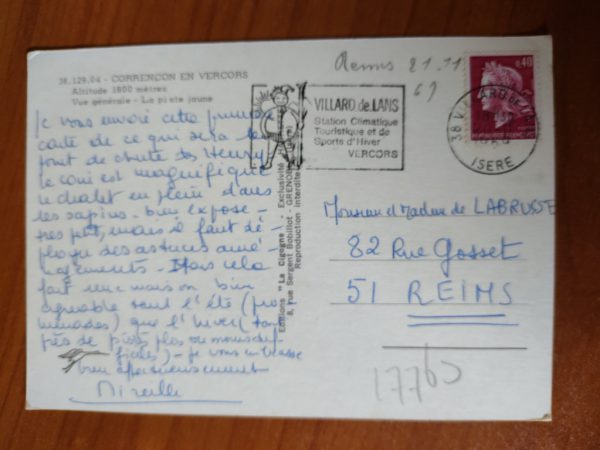 38.129.04 - CORRENÇON EN VERCORS
Altitude 1800 mètres
Vue générale - La piste jaune
Je vous envoie cette première
carte de ce qui sera le
point de chute des Henry
le coin est magnifique
le chalet en plein dans
les sapins. bien exposé -
très petit, mais il faut dé-
ployer des astuces amé-
nagements - Mais cela
fait une maison bien
agréable tant l'été (pro
menades) que l'hiver (
près de pistes plus ou moins dif
ficiles) - je vous embrasse
bien affectueusement
Mireille
Editions "La Cigogne" - Exclusivité
8, rue Sergent Bobillot - GRENOBLE
Reproduction interdite
Reims 21.11
69
VILLARD de LANS
Station Climatique
Touristique et de
Sports d'Hiver
VERCORS
0,40
REPUBLIQUE FRANÇAISE
38 VILLARD DE LANS
ISERE
Monsieur et Madame de LABRUSSE
82 Rue Gosset
51 REIMS